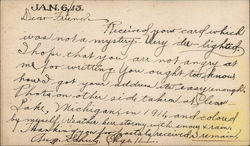 JAN. 6, 13.
Dear Friend
Received your card which
was not a mystery. Very de-lighted
I hope that you are not angry at
me for writing. You ought to know
how I got your address its easy enough.
Photo on other side taken at Clear
Lake, Michigan, in 1912, and colored
by myself. Weather here stormy with snow & rain.
Thanking you for card received I remain
Aug.